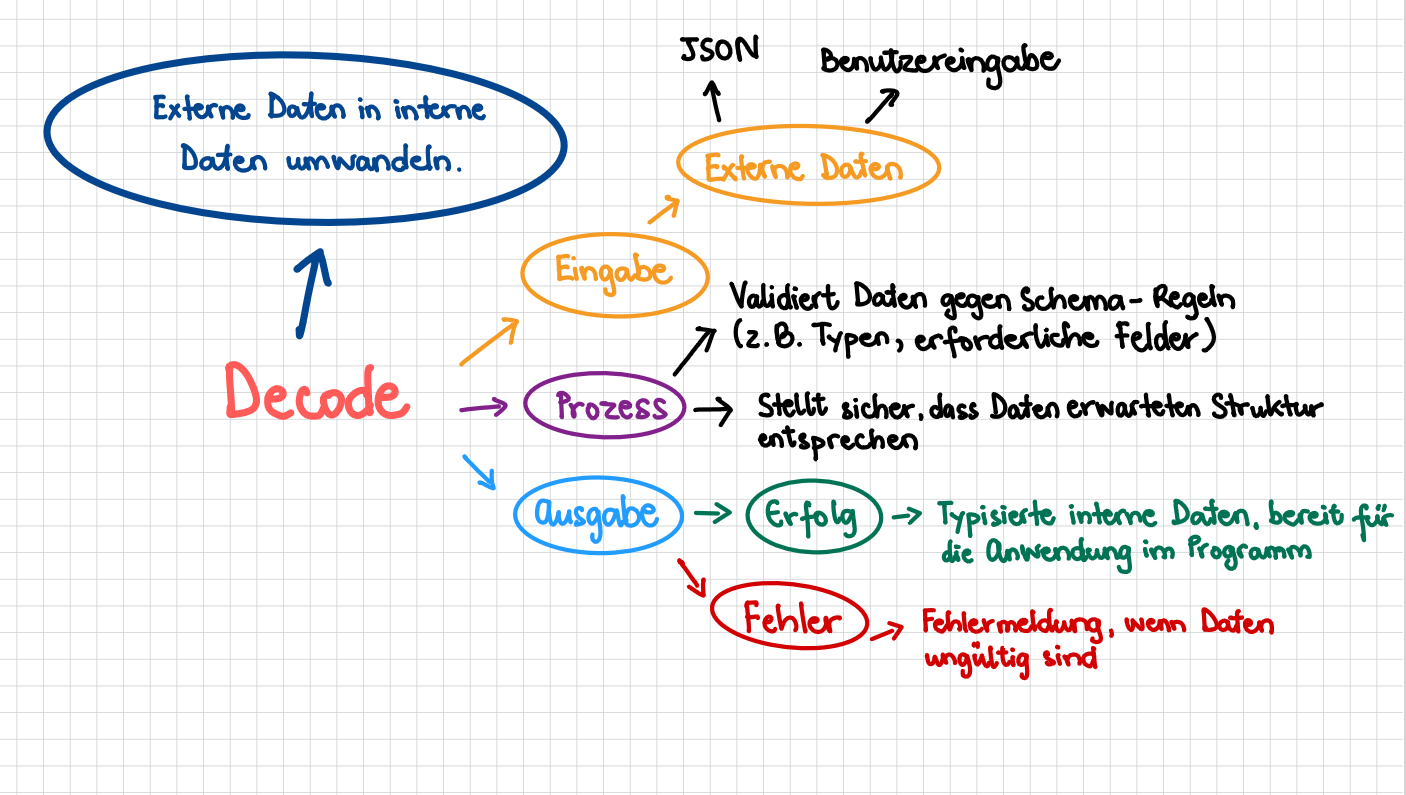 JSON
Benutzereingabe
Externe Daten in interne
Daten umwandeln.
Externe Daten
Eingabe
Validiert Daten gegen Schema-Regeln
(z.B. Typen, erforderliche Felder)
Decode
Prozess
Stellt sicher, dass Daten erwarteten Struktur
entsprechen
Ausgabe
Erfolg
Typisierte interne Daten, bereit für
die Anwendung im Programm
Fehler
Fehlermeldung, wenn Daten
ungültig sind